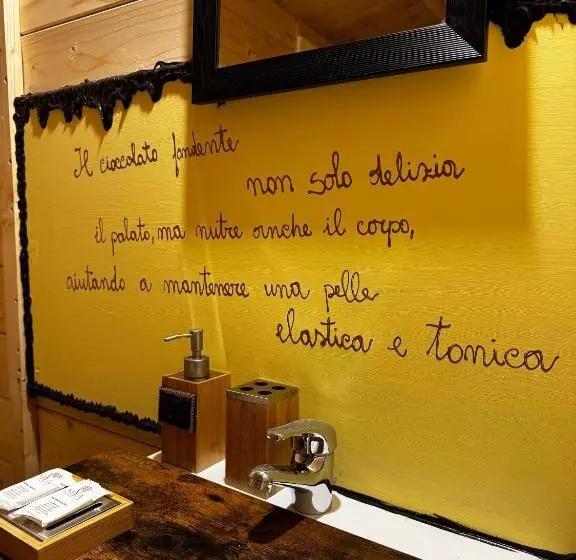 Il cioccolato fondente
non solo delizia
il palato, ma nutre anche il corpo,
aiutando a mantenere una pelle
elastica e tonica